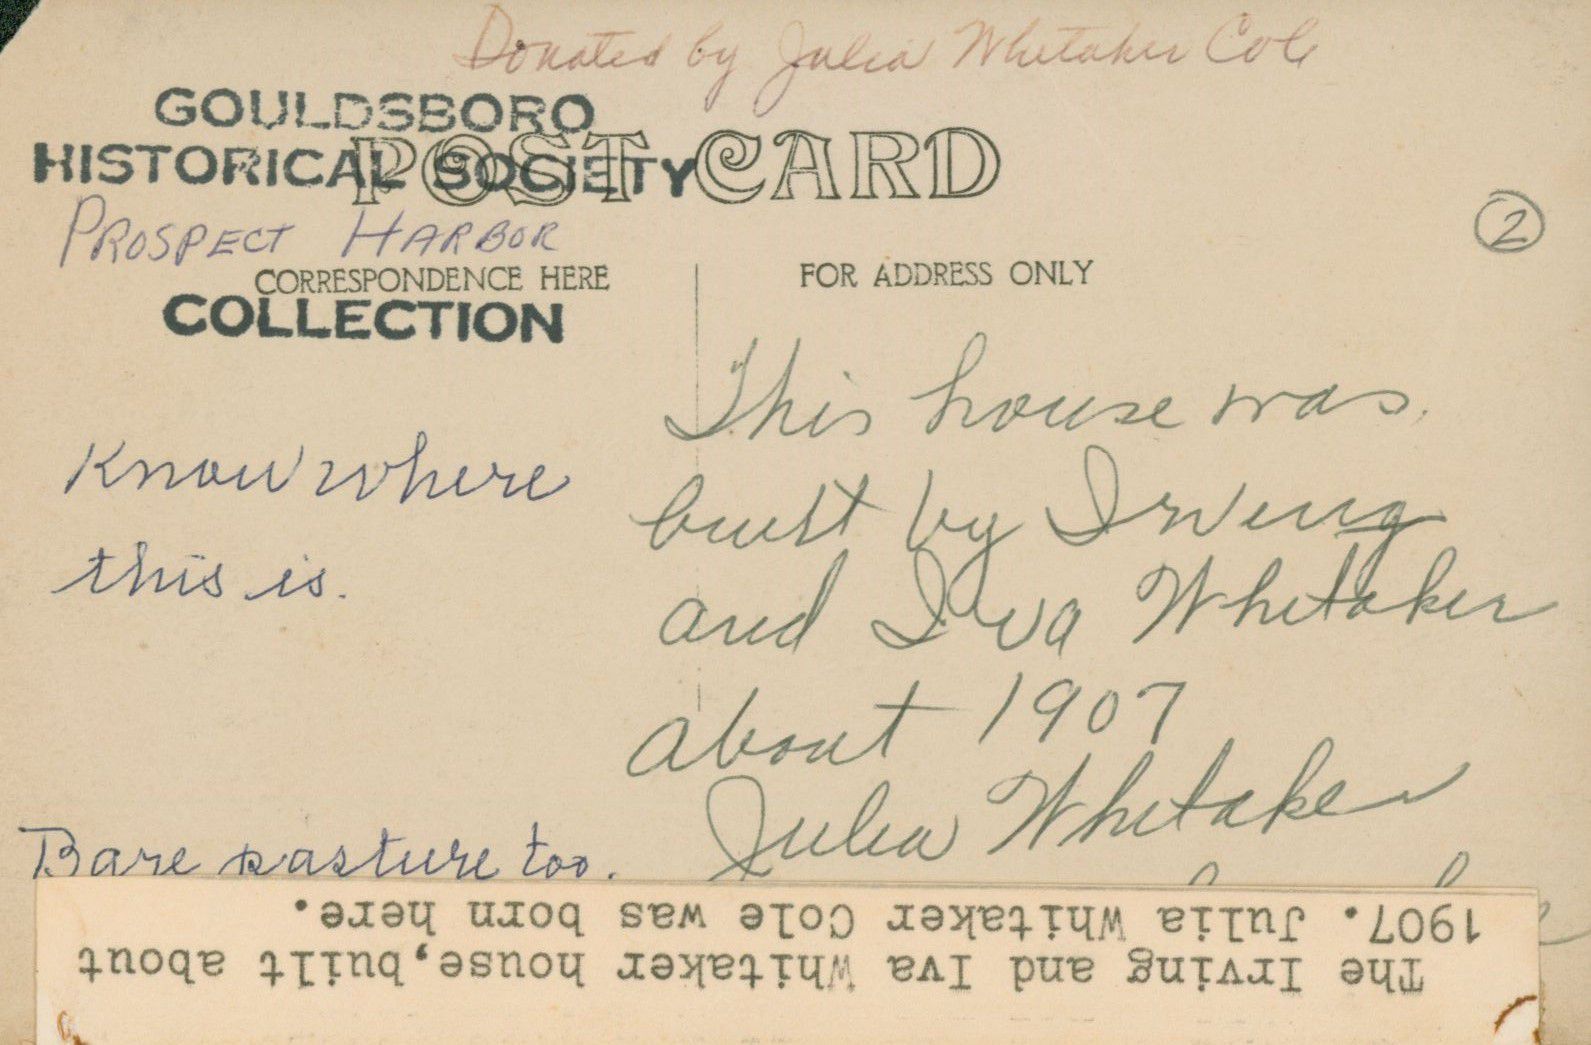 Donated by Julia Whitaker Cole
GOULDSBORO
HISTORICAL SOCIETY
POST CARD
PROSPECT HARBOR
2
CORRESPONDENCE HERE
FOR ADDRESS ONLY
COLLECTION
Know where
this is.
Bare pasture too.
This house was
built by Irving
and Iva Whitaker
about 1907
Julia Whitaker
The Irving and Iva Whitaker house,built about
1907. Julia Whitaker Cole was born here.